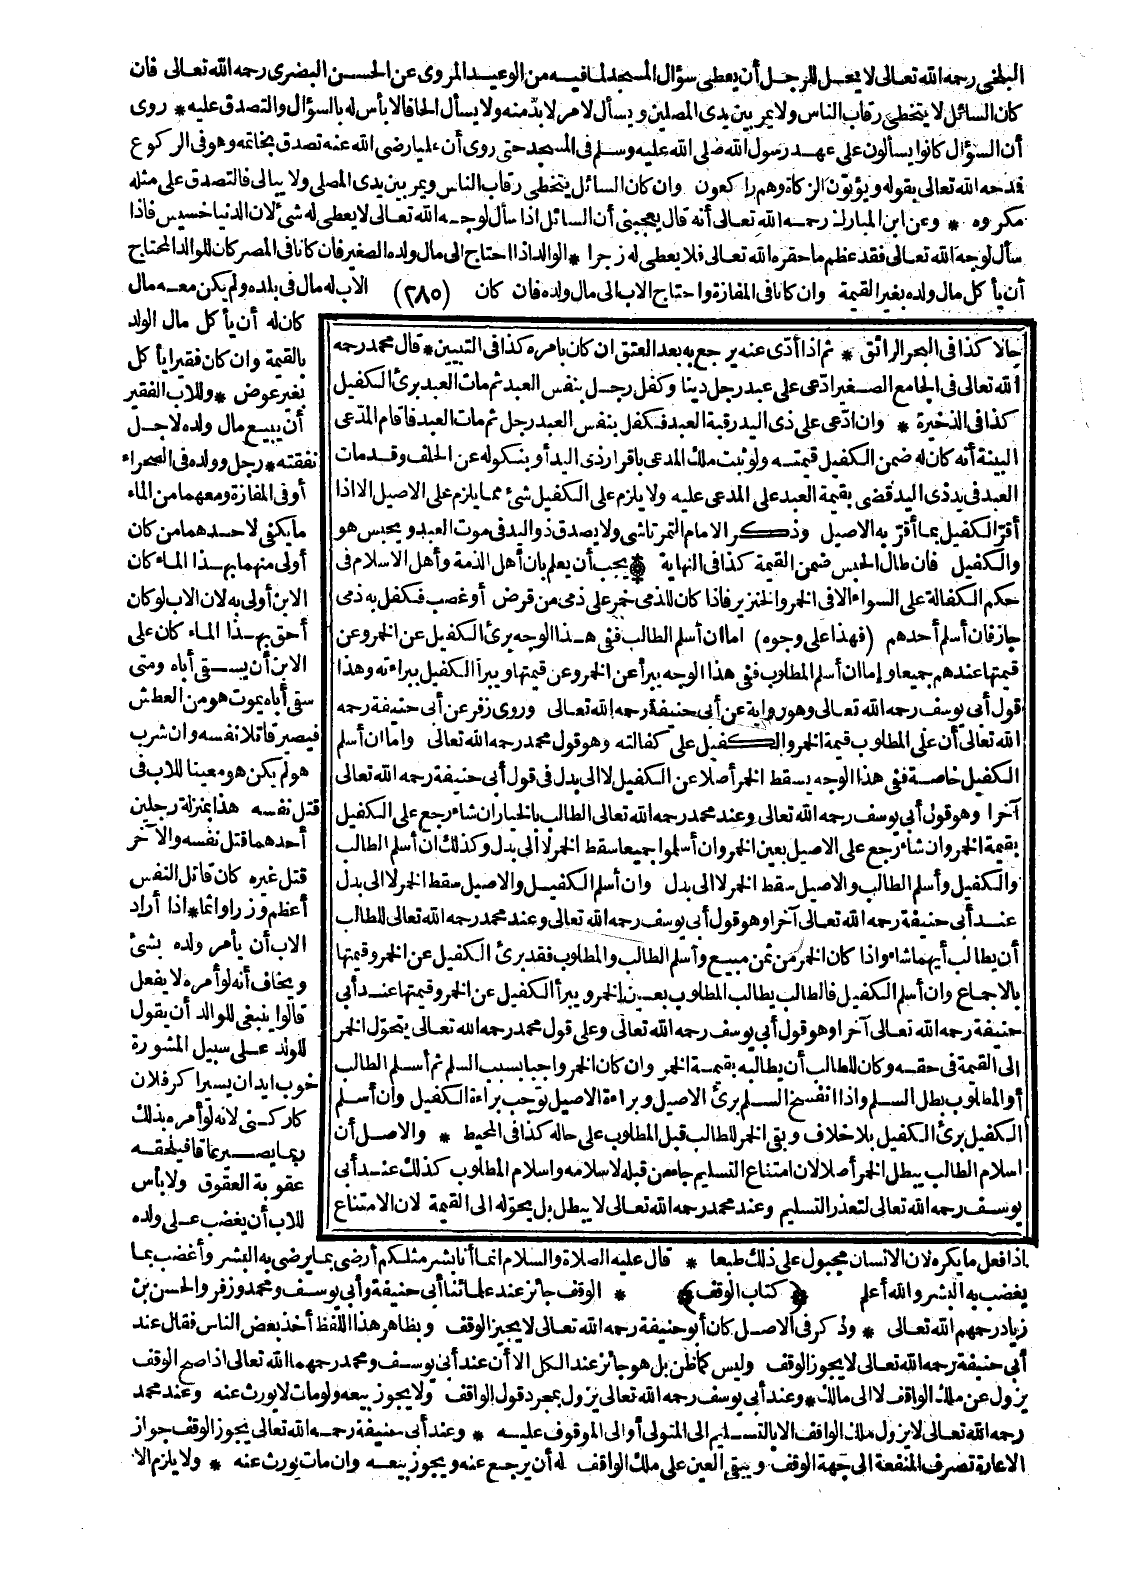 البلخى رحمه الله تعالى لا يحل للرجل أن يعطى سؤال المسجد لما فيه من الوعيد المروى عن الحسن البصرى رحمه الله تعالى فان
كان السائل لا يتخطى رقاب الناس ولا يمر بين يدى المصلين ويسأل لامر لا بد منه ولا يسأل الحافا لا بأس له بالسؤال والتصدق عليه * روى
أن السؤال كانوا يسألون على عهد رسول الله صلى الله عليه وسلم فى المسجد حتى روى أن عليا رضى الله عنه تصدق بخاتمه وهو فى الركوع
فمدحه الله تعالى بقوله ويؤتون الزكاة وهم راكعون وان كان السائل يتخطى رقاب الناس ويمر بين يدى المصلى ولا يبالى فالتصدق على مثله
مكروه * وعن ابن المبارك رحمه الله تعالى أنه قال يعجبنى أن السائل اذا سأل لوجه الله تعالى لا يعطى له شئ لان الدنيا خسيس فاذا
سأل لوجه الله تعالى فقد عظم ما حقره الله تعالى فلا يعطى له زجرا * الوالد اذا احتاج الى مال ولده الصغير فان كانا فى المصر كان للوالد المحتاج
أن يأكل مال ولده بغير القيمة وان كانا فى المفازة واحتاج الاب الى مال ولده فان كان (٢٨٥) الاب له مال فى بلده ولم يكن معه مال
كان له أن يأكل مال الولد
بالقيمة وان كان فقيرا يأكل
بغير عوض * وللاب الفقير
أن يبيع مال ولده لاجل
نفقته * رجل وولده فى الصحراء
أو فى المفازة ومعهما من الماء
ما يكفى لاحدهما من كان
أولى منهما بهذا الماء كان
الابن أولى به لان الاب لو كان
أحق بهذا الماء كان على
الابن أن يسقى أباه ومتى
سقى أباه يموت هو من العطش
فيصير قاتلا نفسه وان شرب
هو لم يكن هو معينا للاب فى
قتل نفسه هذا بمنزلة رجلين
أحدهما قتل نفسه والآخر
قتل غيره كان قاتل النفس
أعظم وزرا واثما * اذا أراد
الاب أن يأمر ولده بشئ
ويخاف أنه لو أمره لا يفعل
قالوا ينبغى للوالد أن يقول
للولد على سبيل المشورة
خوب ايدان يسيرا كر فلان
كار كنى لانه لو أمره بذلك
ربما يصير عاقا فيلحقه
عقوبة العقوق ولا بأس
للاب أن يغضب على ولده
حالا كذا فى البحر الرائق * ثم اذا أدّى عنه يرجع به بعد العتق ان كان بأمره كذا فى التبيين * قال محمد رحمه
الله تعالى فى الجامع الصغير ادّعى على عبد رجل دينا وكفل رجل بنفس العبد ثم مات العبد برئ الكفيل
كذا فى الذخيرة * وان ادّعى على ذى اليد رقبة العبد فكفل بنفس العبد رجل ثم مات العبد فاقام المدّعى
البينة أنه كان له ضمن الكفيل قيمته ولو ثبت ملك المدعى باقرار ذى اليد أو بنكوله عن الحلف وقد مات
العبد فى يد ذى اليد قضى بقيمة العبد على المدعى عليه ولا يلزم على الكفيل شئ مما يلزم على الاصيل الا اذا
أقرّ الكفيل بما أقرّ به الاصيل وذكر الامام التمرتاشى ولا يصدق ذو اليد فى موت العبد ويحبس هو
والكفيل فان طال الحبس ضمن القيمة كذا فى النهاية * يجب أن يعلم بان أهل الذمة وأهل الاسلام فى
حكم الكفالة على السواء الا فى الخمر والخنزير فاذا كان للذمى خمر على ذمى من قرض أو غصب فكفل به ذمى
جاز فان أسلم أحدهم (فهذا على وجوه) اما ان أسلم الطالب ففى هذا الوجه برئ الكفيل عن الخمر وعن
قيمتها عندهم جميعا واما ان أسلم المطلوب ففى هذا الوجه يبرأ عن الخمر وعن قيمتها ويبرأ الكفيل ببراءته وهذا
قول أبى يوسف رحمه الله تعالى وهو رواية عن أبى حنيفة رحمه الله تعالى وروى زفر عن أبى حنيفة رحمه
الله تعالى أن على المطلوب قيمة الخمر والكفيل على كفالته وهو قول محمد رحمه الله تعالى واما ان أسلم
الكفيل خاصة ففى هذا الوجه يسقط الخمر أصلا عن الكفيل لا الى بدل فى قول أبى حنيفة رحمه الله تعالى
آخرا وهو قول أبى يوسف رحمه الله تعالى وعند محمد رحمه الله تعالى الطالب بالخيار ان شاء رجع على الكفيل
بقيمة الخمر وان شاء رجع على الاصيل بعين الخمر وان أسلموا جميعا سقط الخمر لا الى بدل وكذلك ان أسلم الطالب
والكفيل وأسلم الطالب والاصيل سقط الخمر لا الى بدل وان أسلم الكفيل والاصيل سقط الخمر لا الى بدل
عند أبى حنيفة رحمه الله تعالى آخرا وهو قول أبى يوسف رحمه الله تعالى وعند محمد رحمه الله تعالى للطالب
أن يطالب أيهما شاء واذا كان الخمر من ثمن مبيع وأسلم الطالب والمطلوب فقد برئ الكفيل عن الخمر وقيمتها
بالاجماع وان أسلم الكفيل فالطالب يطالب المطلوب بعين الخمر ويبرأ الكفيل عن الخمر وقيمتها عند أبى
حنيفة رحمه الله تعالى آخرا وهو قول أبى يوسف رحمه الله تعالى وعلى قول محمد رحمه الله تعالى يتحوّل الخمر
الى القيمة فى حقه وكان للطالب أن يطالبه بقيمة الخمر وان كان الخمر واجبا بسبب السلم ثم أسلم الطالب
أو المطلوب بطل السلم واذا انفسخ السلم برئ الاصيل وبراءة الاصيل توجب براءة الكفيل وان أسلم
الكفيل برئ الكفيل بلا خلاف وبقى الخمر للطالب قبل المطلوب على حاله كذا فى المحيط * والاصل أن
اسلام الطالب يبطل الخمر أصلا لان امتناع التسليم جاء من قبله لاسلامه واسلام المطلوب كذلك عند أبى
يوسف رحمه الله تعالى لتعذر التسليم وعند محمد رحمه الله تعالى لا يبطل بل يحوّله الى القيمة لان الامتناع
اذا فعل ما يكره لان الانسان مجبول على ذلك طبعا * قال عليه الصلاة والسلام انما أنا بشر مثلكم أرضى بما يرضى به البشر وأغضب بما
يغضب به البشر والله أعلم ﴿كتاب الوقف﴾ * الوقف جائز عند علمائنا أبى حنيفة وأبى يوسف ومحمد وزفر والحسن بن
زياد رحمهم الله تعالى * وذكر فى الاصل كان أبو حنيفة رحمه الله تعالى لا يجيز الوقف وبظاهر هذا اللفظ أخذ بعض الناس فقال عند
أبى حنيفة رحمه الله تعالى لا يجوز الوقف وليس كما ظن بل هو جائز عند الكل الا أن عند أبى يوسف ومحمد رحمهما الله تعالى اذا صح الوقف
يزول عن ملك الواقف لا الى مالك * وعند أبى يوسف رحمه الله تعالى يزول بمجرد قول الواقف ولا يجوز بيعه ولو مات لا يورث عنه وعند محمد
رحمه الله تعالى لا يزول ملك الواقف الا بالتسليم الى المتولى أو الى الموقوف عليه * وعند أبى حنيفة رحمه الله تعالى يجوز الوقف جواز
الاعارة تصرف المنفعة الى جهة الوقف ويبقى العين على ملك الواقف له أن يرجع عنه ويجوز بيعه وان مات يورث عنه * ولا يلزم الا